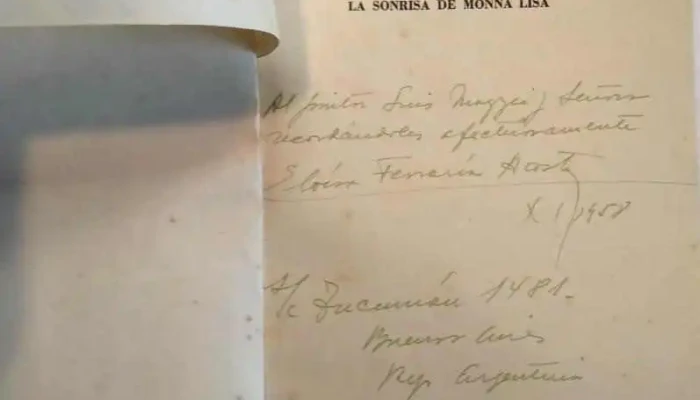 LA SONRISA DE MONNA LISA
Al pintor Luis Mazzei y Señora
recordándoles afectuosamente
Eloísa Ferraría Acosta
XI/1958
S/c Tucumán 1481.
Buenos Aires
Rep Argentina